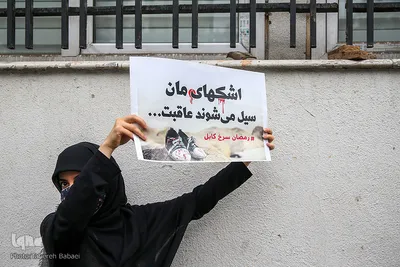 اشکهای مان
سیل می‌شوند عاقبت...
# رمضان سرخ کابل
ایکنا
iqna
Photo: Zohreh Babaei